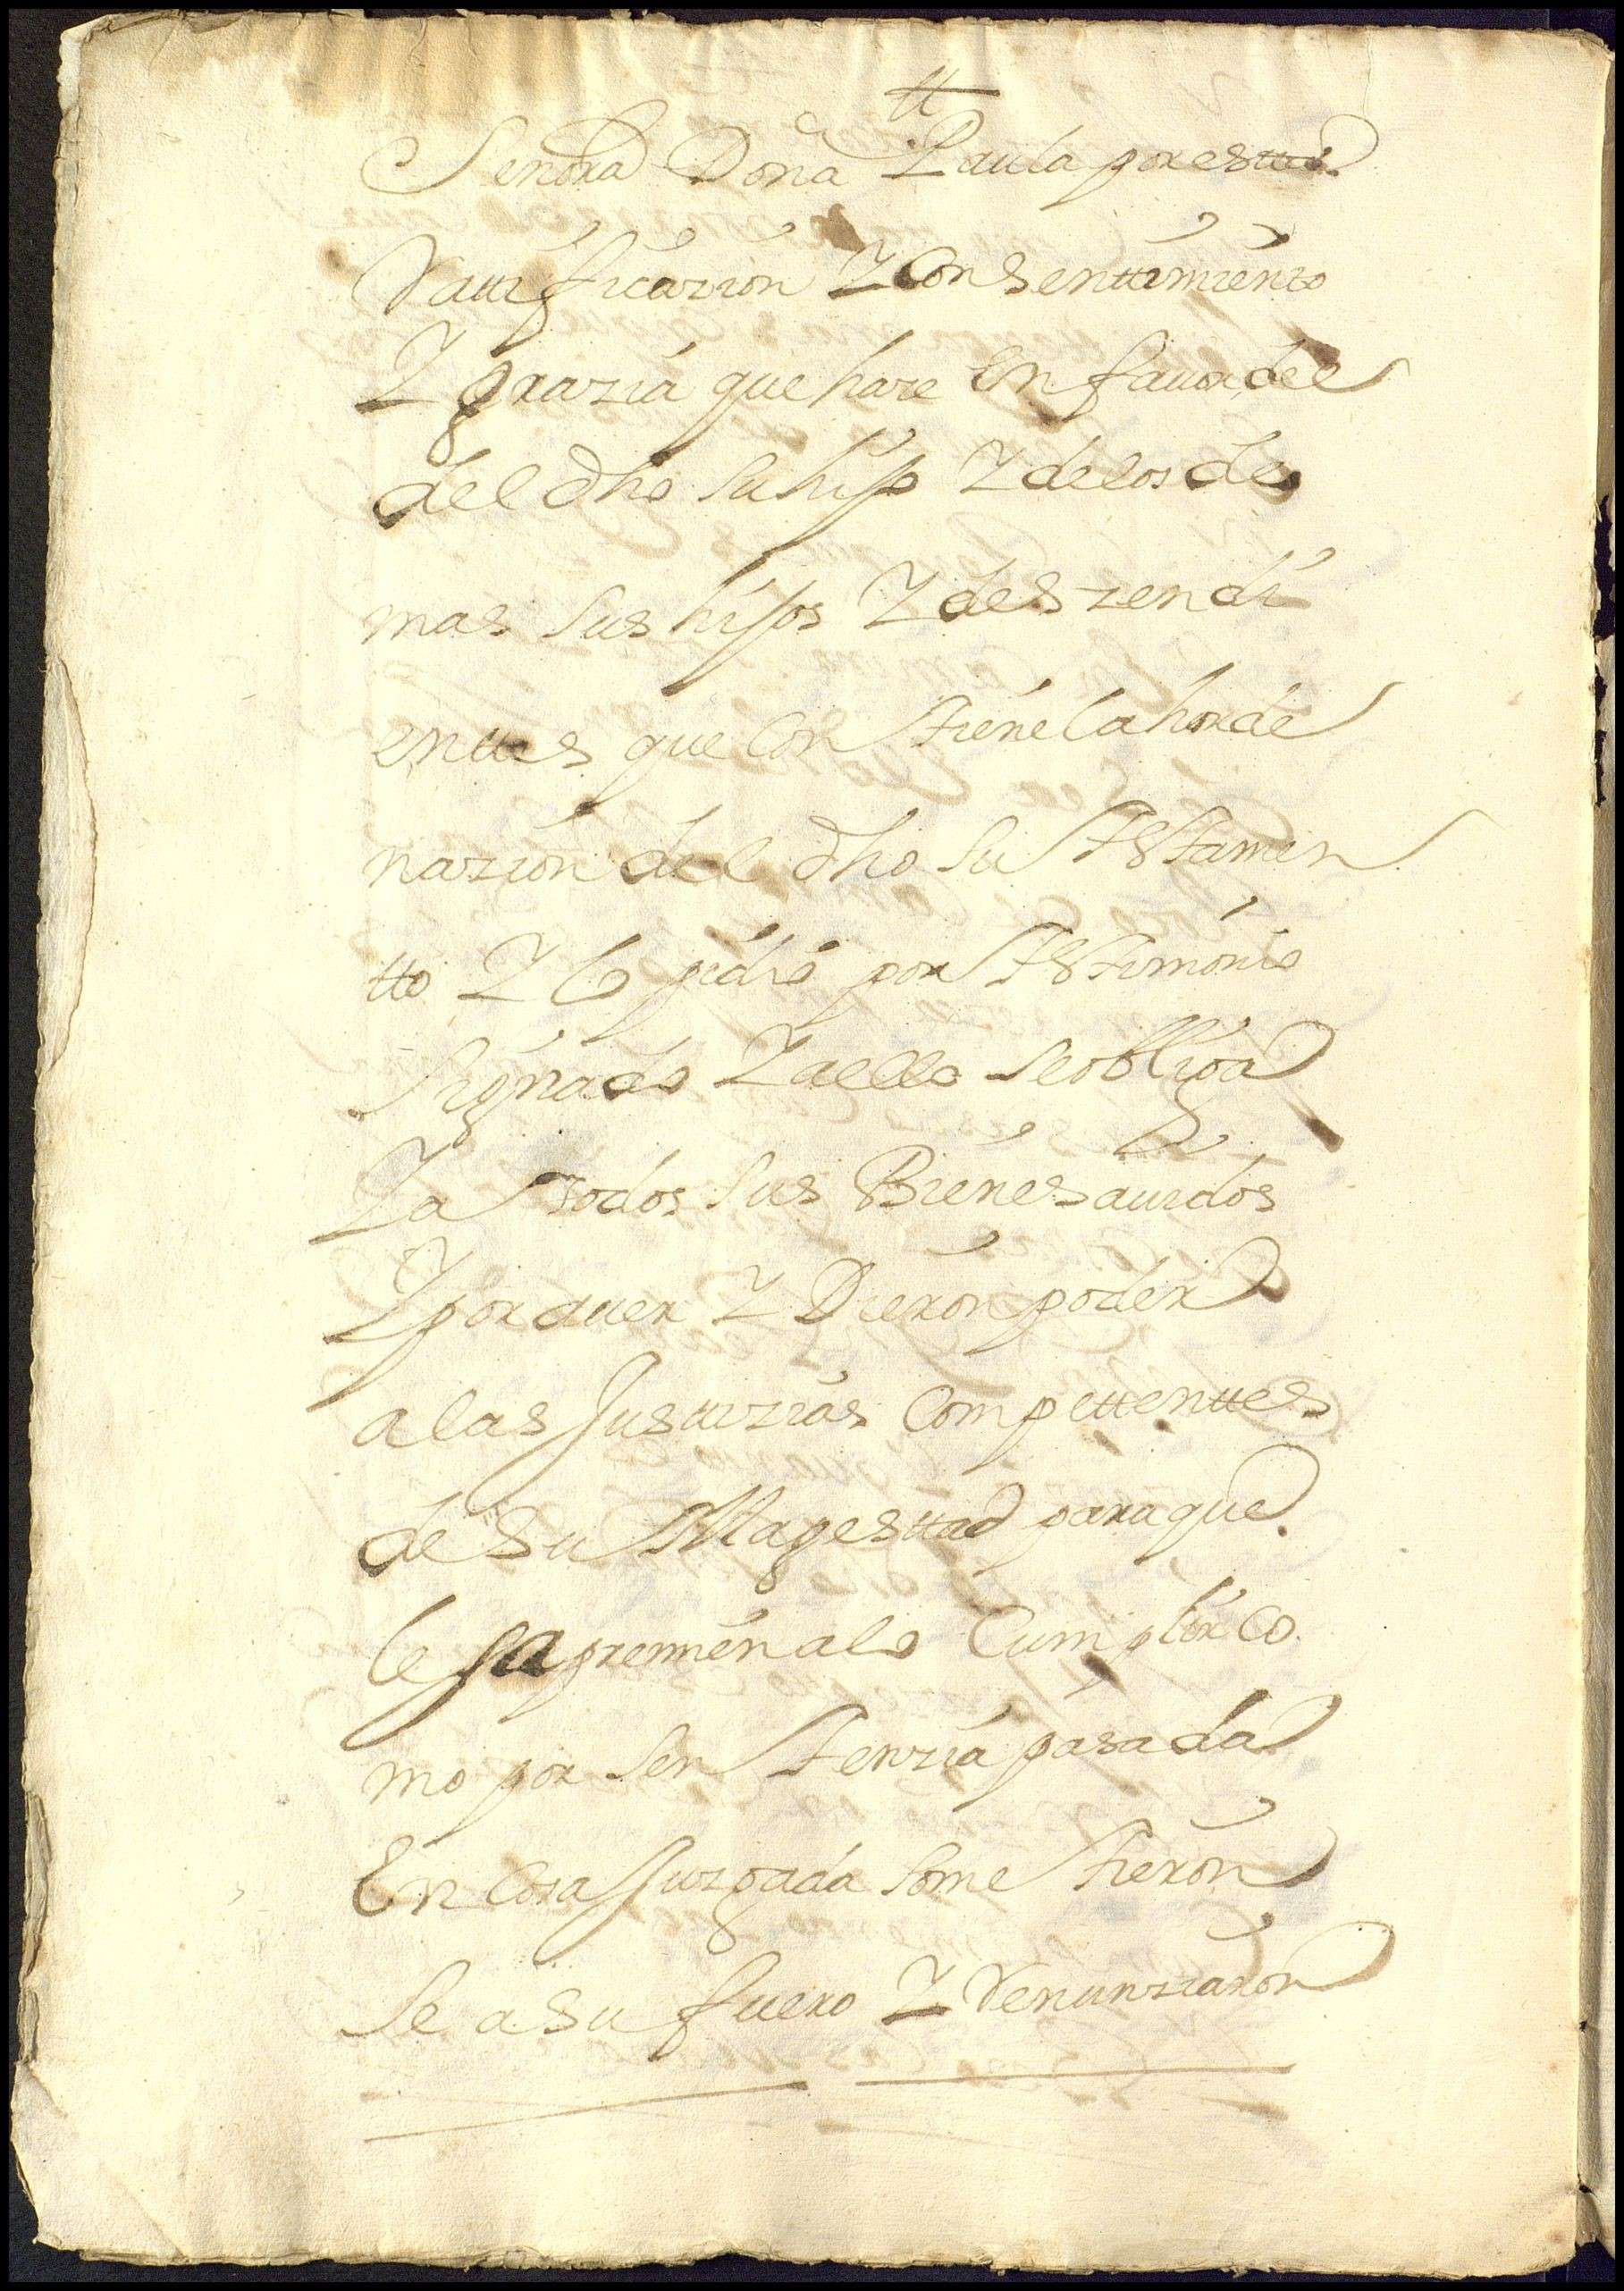 tt
Señora Doña Paula por estta
Rattificazion Y Consenttimiento
Y grazia que haze en fauor del
del dho su hijo Y de los de
mas sus hijos Y deszendi
enttes que Contiene la horde
nazion del dho su testamen
tto Y lo pidio por testimonio
signado Y a ello se obliga
Y a todos sus Bienes auidos
Y por auer Y Dieron poder
a las Justtizias Compettenttes
de Su Magesttad para que
les apremien a lo Cumplir Co
mo por sentenzia pasada
En Cosa Juzgada sometieron
se a su fuero Y Renunziaron